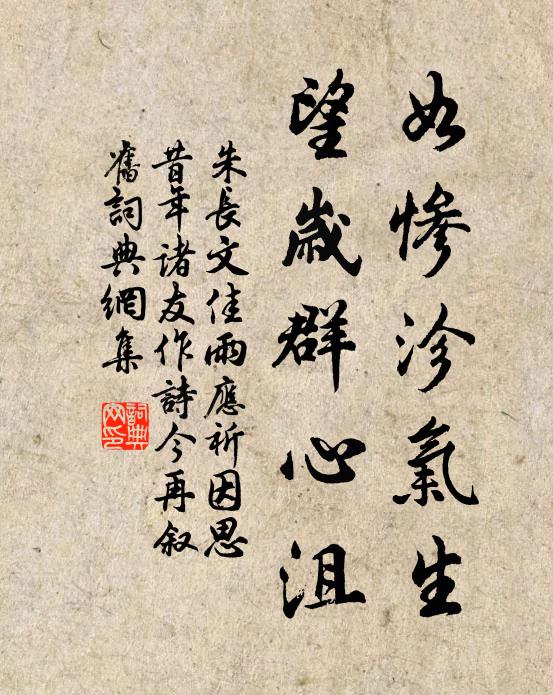 如慘沴氣生
望歲群心沮
朱長文佳雨應祈因思
昔年諸友作詩今再叙
舊詞典網集
詞典網印